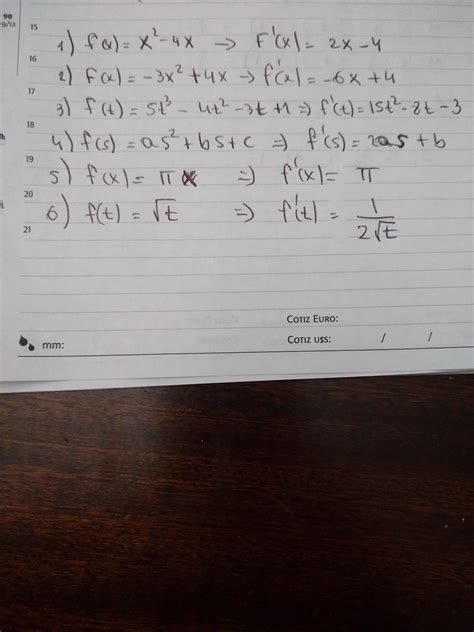 90
15
1) f(x) = x² - 4x → F'(x) = 2x - 4
16
2) F(x) = -3x² + 4x → f'(x) = -6x + 4
17
3) f(t) = 5t³ - 4t² - 3t + 1 ⇒ f'(t) = 15t² - 8t - 3
18
4) f(s) = as² + bs + c ⇒ f'(s) = 2as + b
19
5) f(x) = πx ⇒ f'(x) = π
20
6) f(t) = √t ⇒ f'(t) = 1/(2√t)
21
COTIZ EURO:
mm:
COTIZ U$S: / /